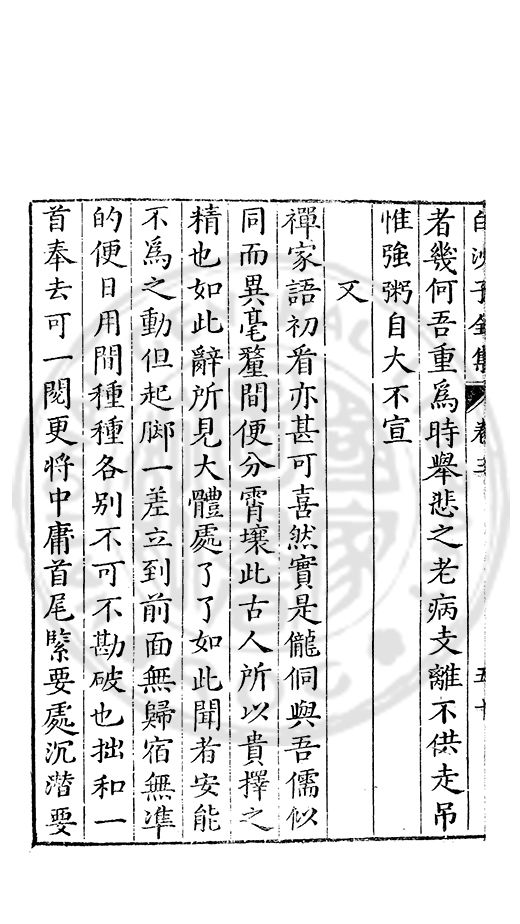 白沙子全集 卷三 五十
者幾何吾重為時舉悲之老病支離不供走吊
惟強粥自大不宣
又
禪家語初看亦甚可喜然實是儱侗與吾儒似
同而異毫釐間便分霄壤此古人所以貴擇之
精也如此辭所見大體處了了如此聞者安能
不為之動但起腳一差立到前面無歸宿無準
的便日用間種種各別不可不勘破也拙和一
首奉去可一閱更將中庸首尾緊要處沉潛要